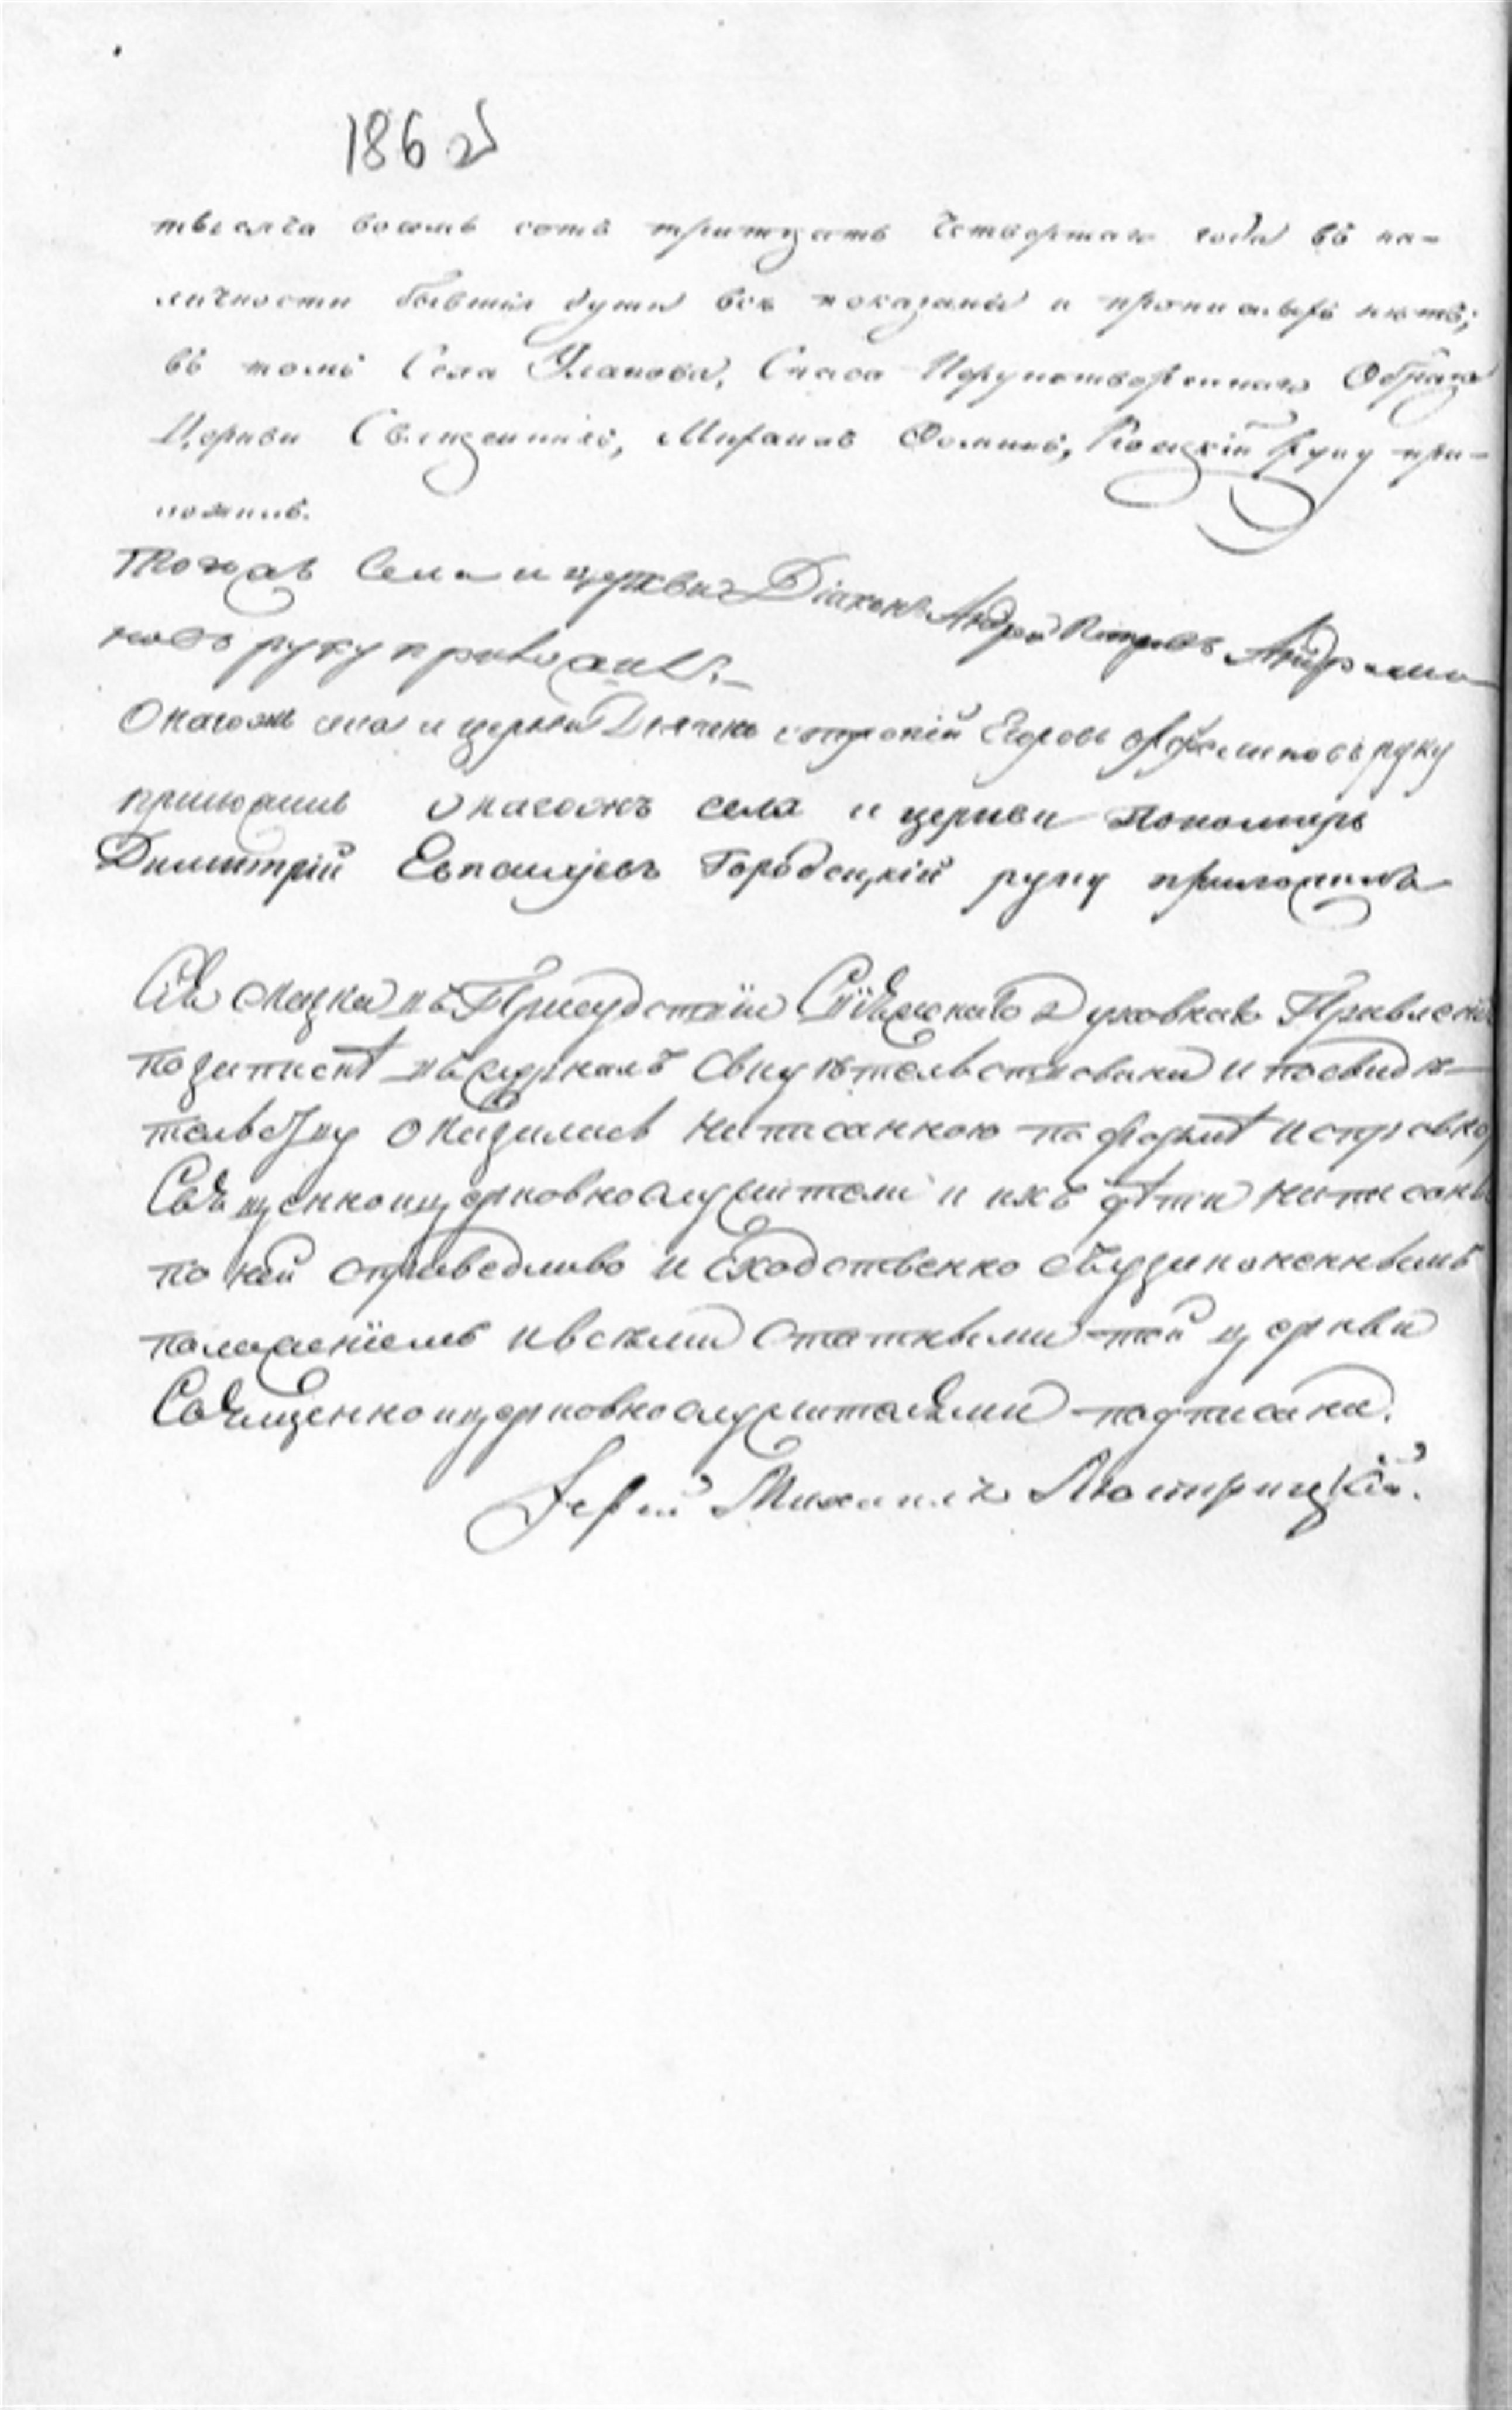 186 об
тысяча восемь сотъ тритцать Четвертаго года въ на-
личности бывшія души все показаны и прописныхъ нѣтъ;
въ томъ Села Уланова, Спаса Нерукотвореннаго Образа
Церкви Священникъ, Михаилъ Фоминъ, руку при-
ложилъ.
Тогожъ Села и церкви Діаконъ Андрей Петровъ
новъ руку приложилъ.
Онагожъ села и церкви Дьячекъ Егоровъ руку
приложилъ Онагожъ села и церкви Пономарь
Димитрій Городецкій руку приложилъ
Сія Скаска въ Присудствіи Духовнаго Правленія
позаписѣ въ журналъ Свидѣтельствована и посвидѣ-
тельству Оказалась написанною по формѣ исправно
Священноицерковнослужители и ихъ дѣти написаны
по ней справедливо и сходственно съузаконеннымъ
положеніемъ ивсѣми Статными той церкви
Священноицерковнослужителями подписана.
Іерей Михаилъ